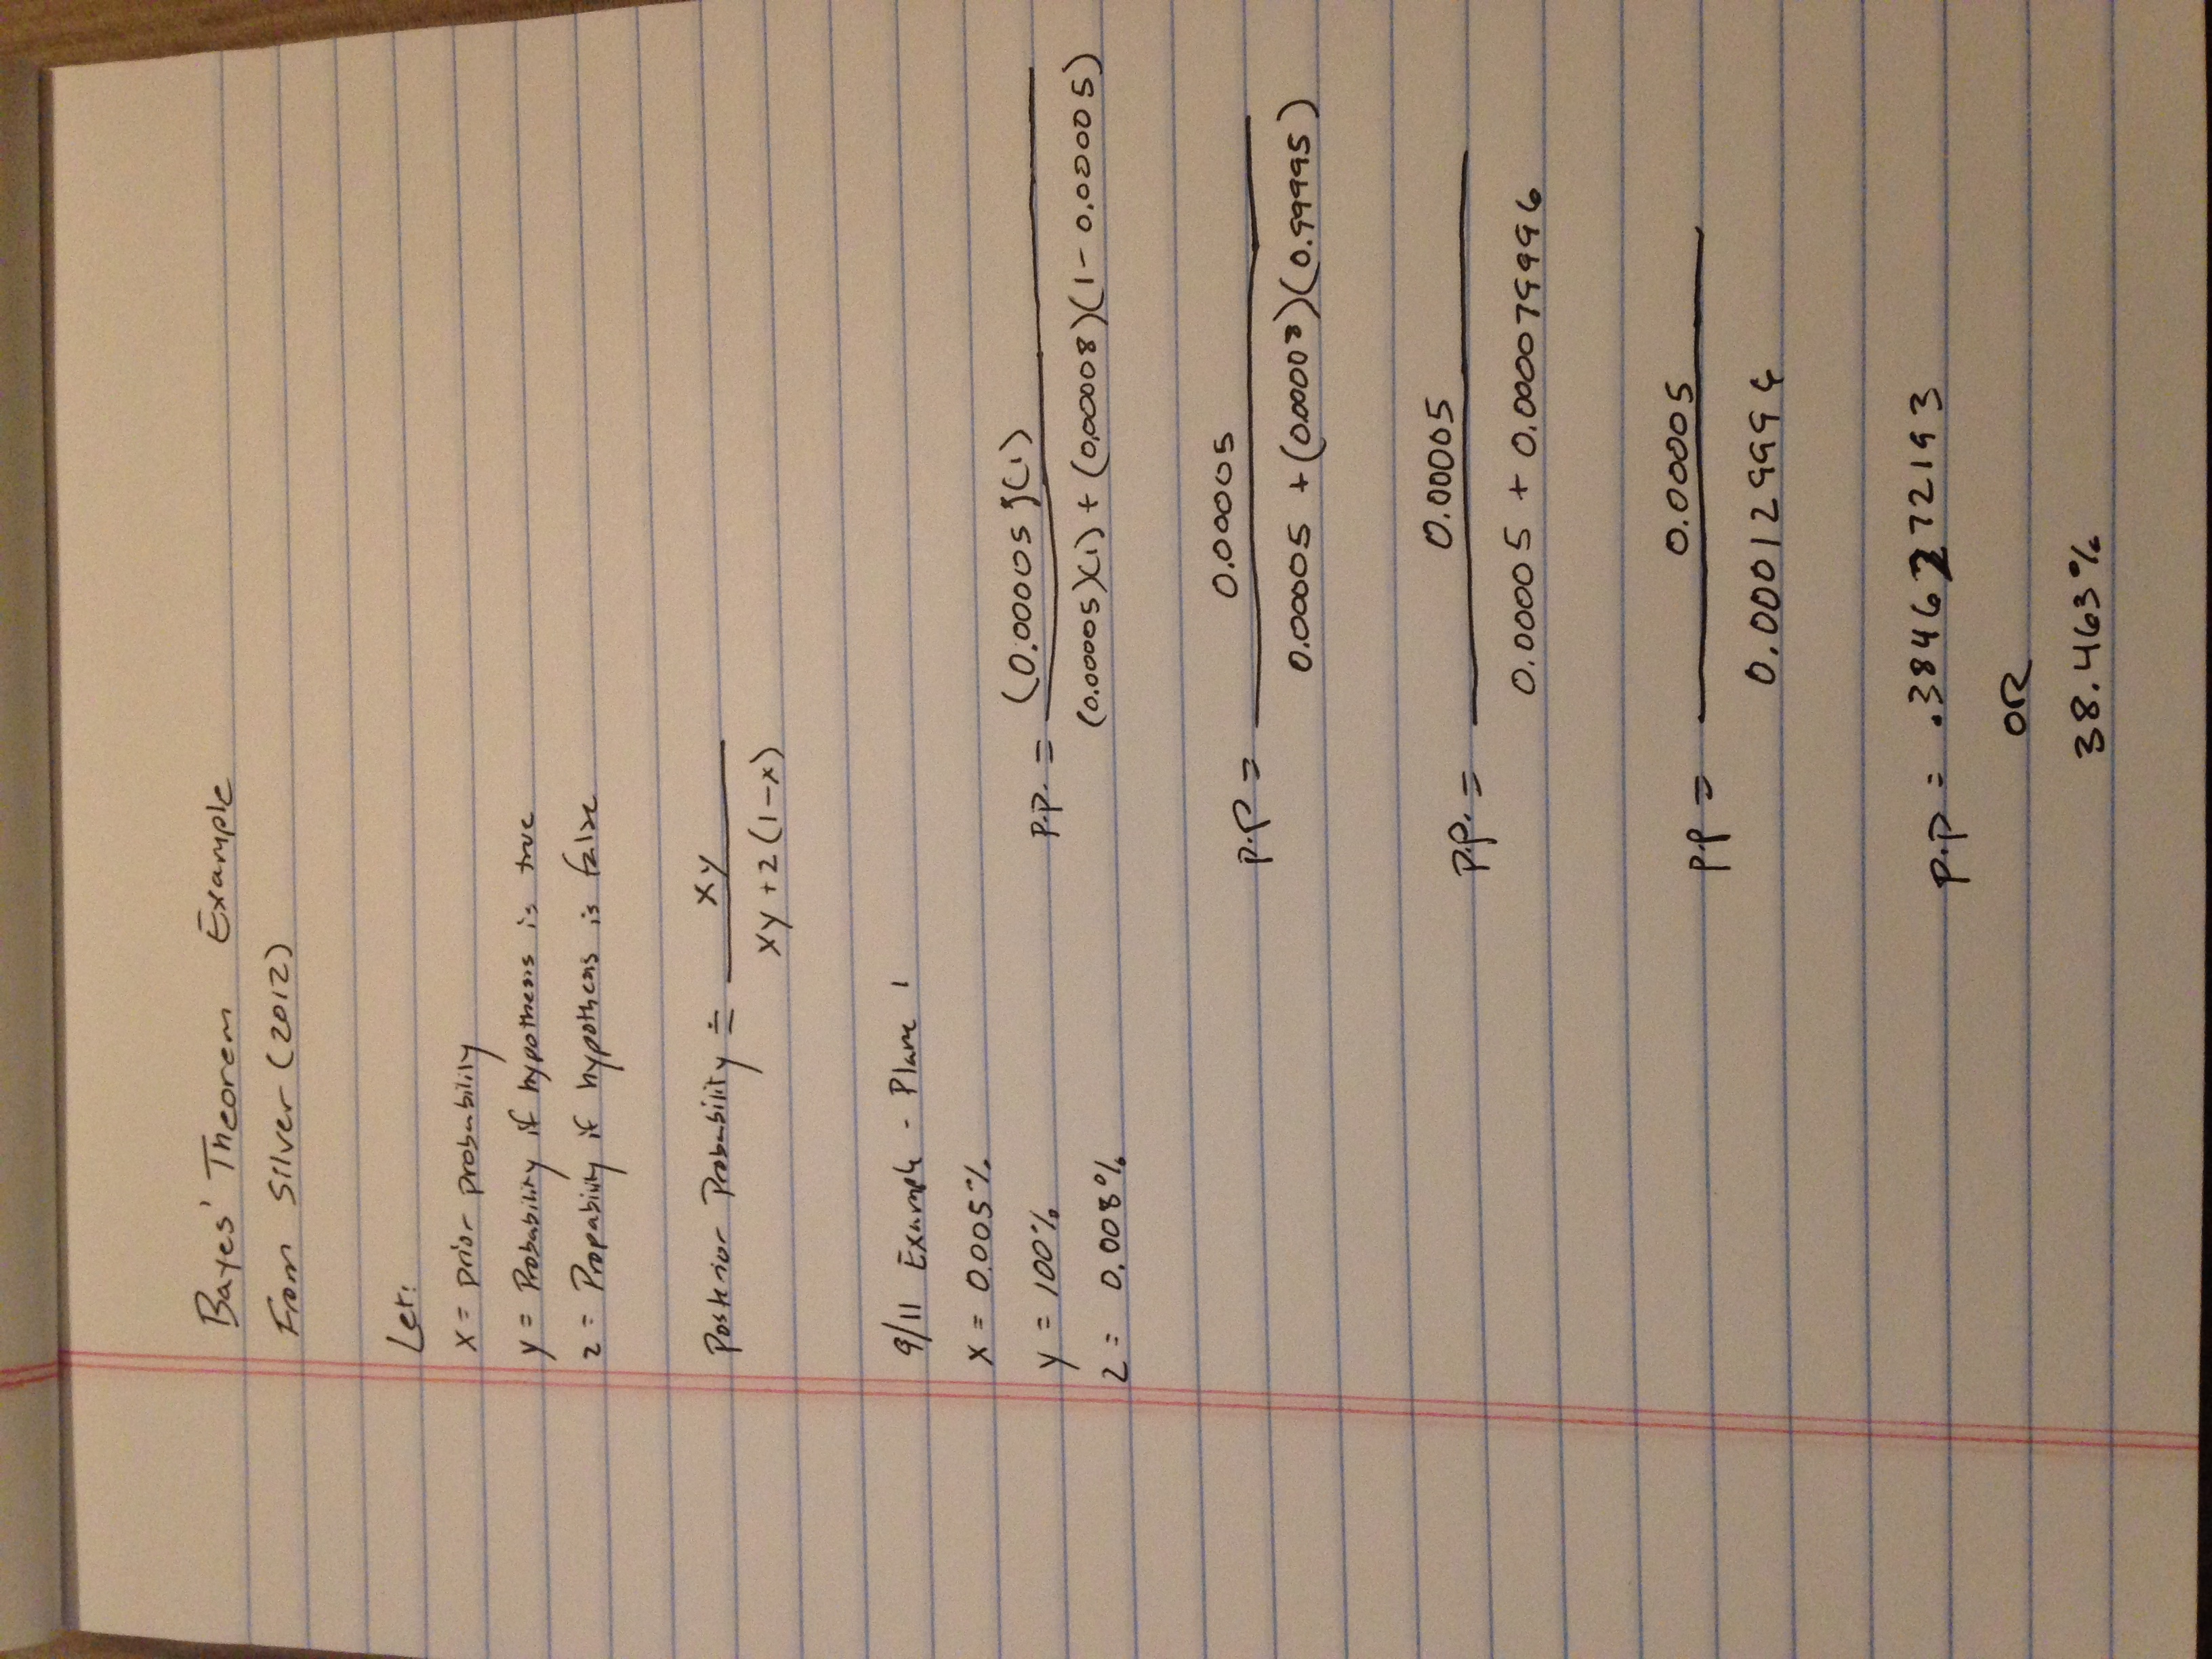 Bayes' Theorem Example
From Silver (2012)
Let:
x = prior probability
y = Probability if hypothesis is true
z = Propability if hypothesis is false
Posterior Probability = xy
xy + z(1-x)
9/11 Example - Plane 1
x = 0.005%
y = 100%
z = 0.008%
P.P. = (0.00005)(1)
(0.00005)(1) + (0.00008)(1 - 0.00005)
P.P = 0.00005
0.00005 + (0.00008)(0.99995)
P.P. = 0.00005
0.00005 + 0.000079996
P.P = 0.00005
0.000129996
P.P = .3846272193
OR
38.463%